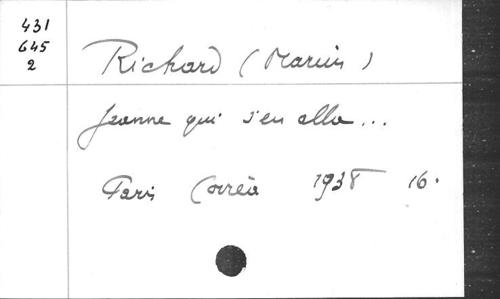 431
645
2
Richard (Marius)
Jeanne qui s'en alla...
Paris Corrêa 1938 16.